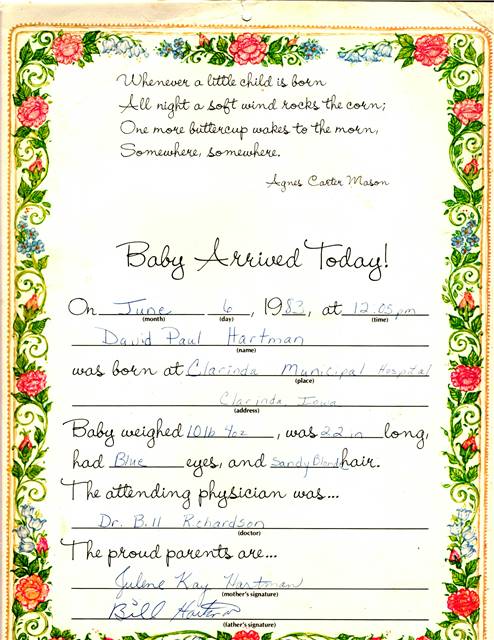 Whenever a little child is born
All night a soft wind rocks the corn;
One more buttercup wakes to the morn,
Somewhere, somewhere.
Agnes Carter Mason
Baby Arrived Today!
On June 6, 1983, at 12:05 pm
(month) (day) (time)
David Paul Hartman
(name)
was born at Clarinda Municipal Hospital
(place)
Clarinda Iowa
(address)
Baby weighed 10 lb 4oz, was 22 in long,
had Blue eyes, and Sandy Blond hair.
The attending physician was...
Dr. Bill Richardson
(doctor)
The proud parents are...
Julene Kay Hartman
(mother's signature)
Bill Hartman
(father's signature)